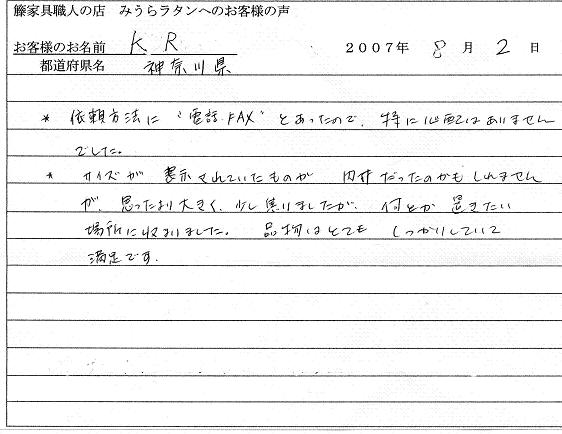 籐家具職人の店 みうらラタンへのお客様の声
お客様のお名前 K R 2007年 8 月 2 日
都道府県名 神奈川県
* 依頼方法に "電話、FAX" とあったので、特に心配はありません
でした。
* サイズが 表示されていたものが 内寸だったのかもしれません
が、思ったより大きく、少し焦りましたが、何とか 置きたい
場所に収まりました。 品物はとても しっかりしていて
満足です。